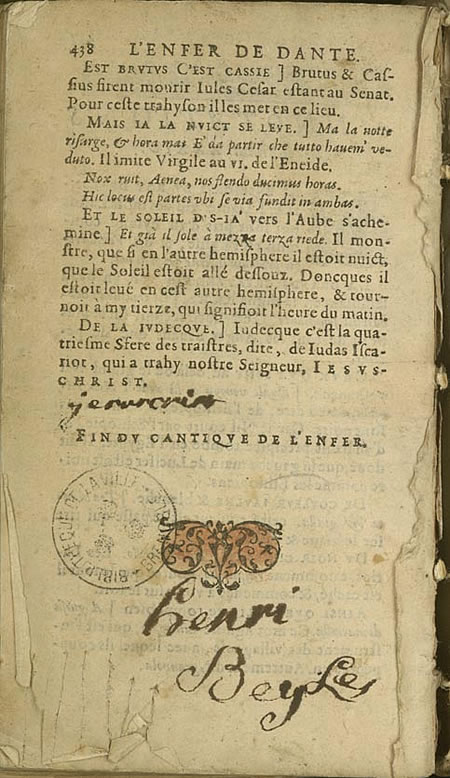 438 L'ENFER DE DANTE.
EST BRVTVS C'EST CASSIE ] Brutus & Cas-
sius firent mourir Iules Cesar estant au Senat.
Pour ceste trahyson il les met en ce lieu.
MAIS IA LA NVICT SE LEVE. ] Ma la notte
risurge, & hora mai E' da partir che tutto havem' ve-
duto. Il imite Virgile au VI. de l'Eneide.
Nox ruit, Aenea, nos flendo ducimus horas.
Hic locus est partes vbi se via fundit in ambas.
ET LE SOLEIL D'S-IA' vers l'Aube s'ache-
mine ] Et già il sole à mezza terza riede. Il mon-
stre, que si en l'autre hemisphere il estoit nuict,
que le Soleil estoit allé dessouz. Doncques il
estoit leué en cest autre hemisphere, & tour-
noit à my tierze, qui signifioit l'heure du matin.
DE LA IVDECQVE. ] Iudecque c'est la qua-
triesme Sfere des traistres, dite, de Iudas Isca-
riot, qui a trahy nostre Seigneur, IESVS-
CHRIST.
FIN DV CANTIQVE DE L'ENFER.
Henri
Beyle